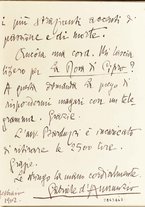 i più strazianti accordi di
passione e di morte.
Ancora una cosa. Mi lascia
libero per la Rosa di Cipro?
A questa domanda la prego di
rispondermi magari con un tele
gramma. Grazie.
L'avv. è incaricato
di ritirare le 2500 lire.
Grazie.
Le stringo la mano cordialmente
Gabriele d'Annunzio
1902